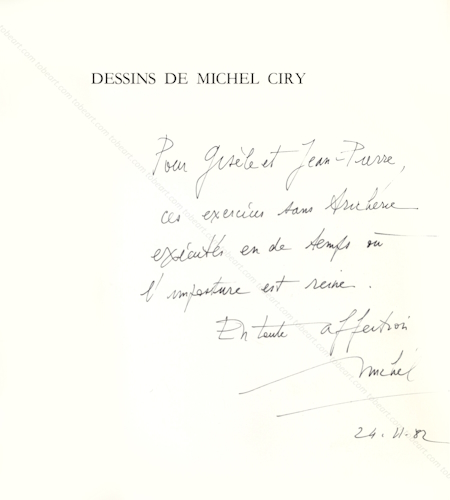 DESSINS DE MICHEL CIRY
Pour Gisèle et Jean-Pierre,
ces exercices sans tricherie
exécutés en de temps où
l'imposture est reine.
En toute affection
Michel
24.11.82